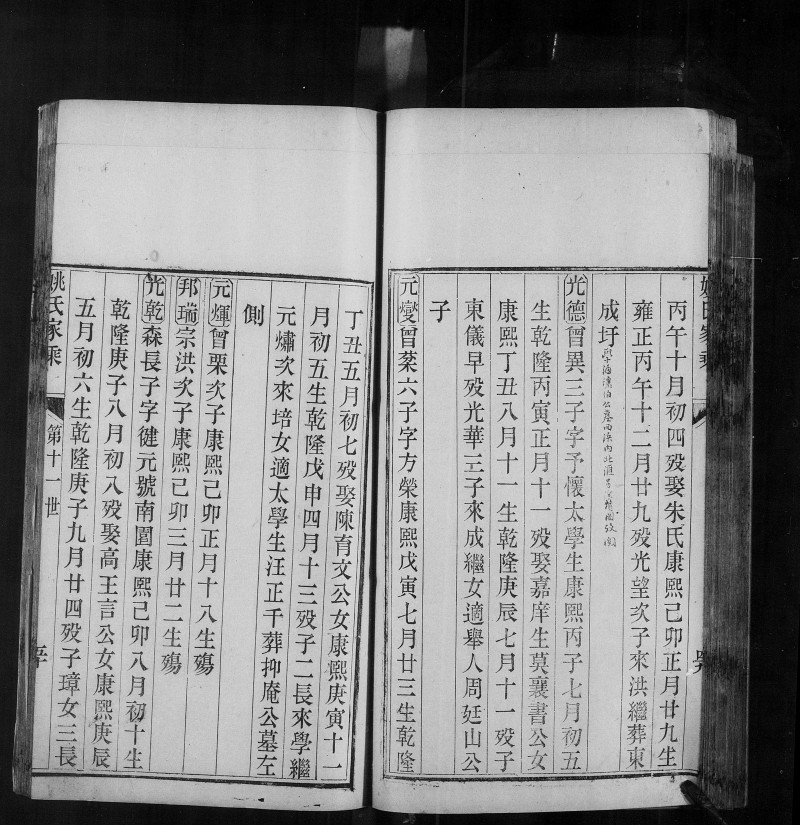 丙午十月初四歿娶朱氏康熙己卯正月廿九生
雍正丙午十二月廿九歿光望次子來洪繼葬東
成圩
光德曾異三子字予懷太學生康熙丙子七月初五
生乾隆丙寅正月十一歿娶嘉庠生莫襄書公女
康熙丁丑八月十一生乾隆庚辰七月十一歿子
東儀早歿光華三子來成繼女適舉人周廷山公
子
元燮曾棻六子字方榮康熙戊寅七月廿三生乾隆
丁丑五月初七歿娶陳育文公女康熙庚寅十一
月初五生乾隆戊申四月十三歿子二長來學繼
元爌次來培女適太學生汪正千葬抑庵公墓左
側
元煇曾栗次子康熙己卯正月十八生殤
邦瑞宗洪次子康熙己卯三月廿二生殤
光乾森長子字健元號南園康熙己卯八月初十生
乾隆庚子八月初八歿娶高王言公女康熙庚辰
五月初六生乾隆庚子九月廿四歿子璋女三長
姚氏家乘
第十一世